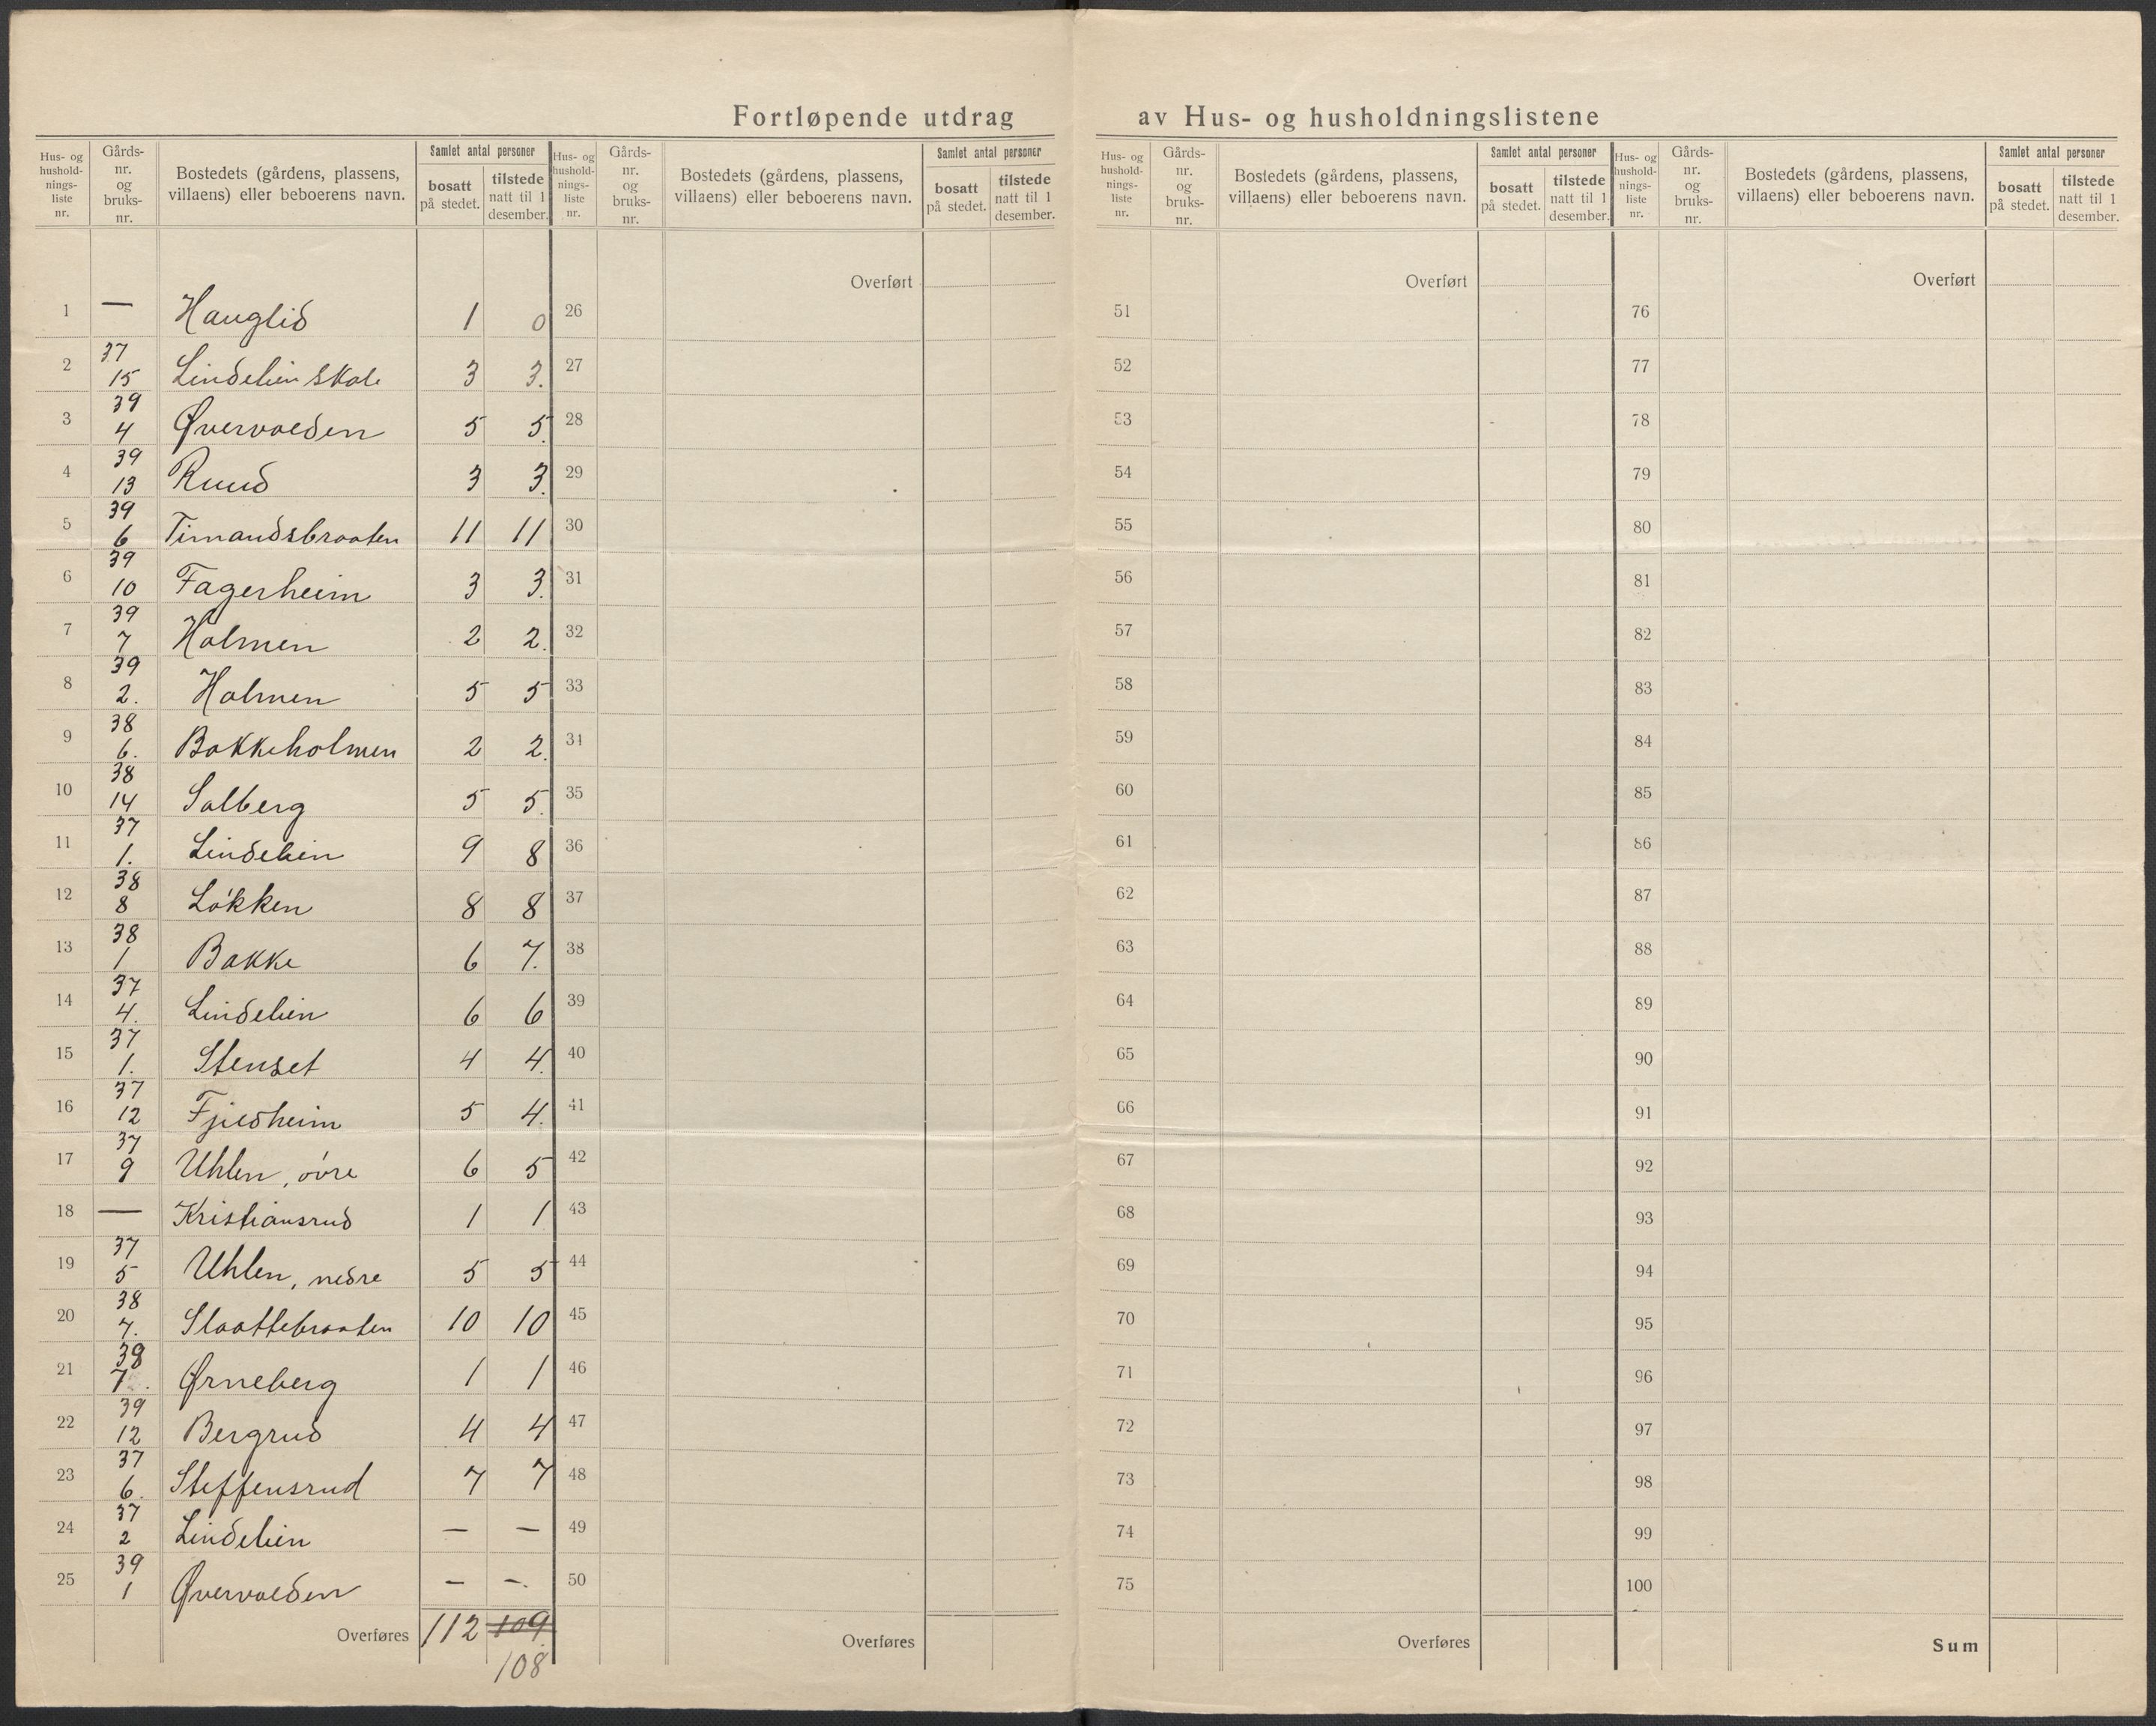 Fortløpende utdrag av Hus- og husholdningslistene
Hus- og hushold-nings-liste nr. Gårds-nr. og bruks-nr. Bostedets (gårdens, plassens, villaens) eller beboerens navn. Samlet antal personer bosatt på stedet. tilstede natt til 1 desember.
Hus- og hushold-nings-liste nr. Gårds-nr. og bruks-nr. Bostedets (gårdens, plassens, villaens) eller beboerens navn. Samlet antal personer bosatt på stedet. tilstede natt til 1 desember.
Hus- og hushold-nings-liste nr. Gårds-nr. og bruks-nr. Bostedets (gårdens, plassens, villaens) eller beboerens navn. Samlet antal personer bosatt på stedet. tilstede natt til 1 desember.
Hus- og hushold-nings-liste nr. Gårds-nr. og bruks-nr. Bostedets (gårdens, plassens, villaens) eller beboerens navn. Samlet antal personer bosatt på stedet. tilstede natt til 1 desember.
Overført Overført Overført
1 — Hauglid 1 0 26 51 76
2 37 15 Lindelien skole 3 3. 27 52 77
3 39 4 Øvervolden 5 5. 28 53 78
4 39 13 Ruud 3 3. 29 54 79
5 39 6 Timandsbraaten 11 11 30 55 80
6 39 10 Fagerheim 3 3. 31 56 81
7 39 7 Holmen 2 2. 32 57 82
8 39 2. Holmen 5 5 33 58 83
9 38 6. Bakkeholmen 2 2. 34 59 84
10 38 14 Solberg 5 5. 35 60 85
11 37 1. Lindelien 9 8 36 61 86
12 38 8 Løkken 8 8 37 62 87
13 38 1 Bakke 6 7. 38 63 88
14 37 4. Lindelien 6 6 39 64 89
15 37 1. Stenset 4 4. 40 65 90
16 37 12 Fjeldheim 5 4. 41 66 91
17 37 9 Uhlen, øvre 6 5 42 67 92
18 — Kristiansrud 1 1 43 68 93
19 37 5 Uhlen, nedre 5 5 44 69 94
20 38 7. Slaattebraaten 10 10 45 70 95
21 38 7. Ørneberg 1 1 46 71 96
22 39 12 Bergrud 4 4 47 72 97
23 37 6. Steffensrud 7 7 48 73 98
24 37 2 Lindelien — — 49 74 99
25 39 1 Øvervolden — —. 50 75 100
Overføres 112 109 Overføres Overføres Sum
108